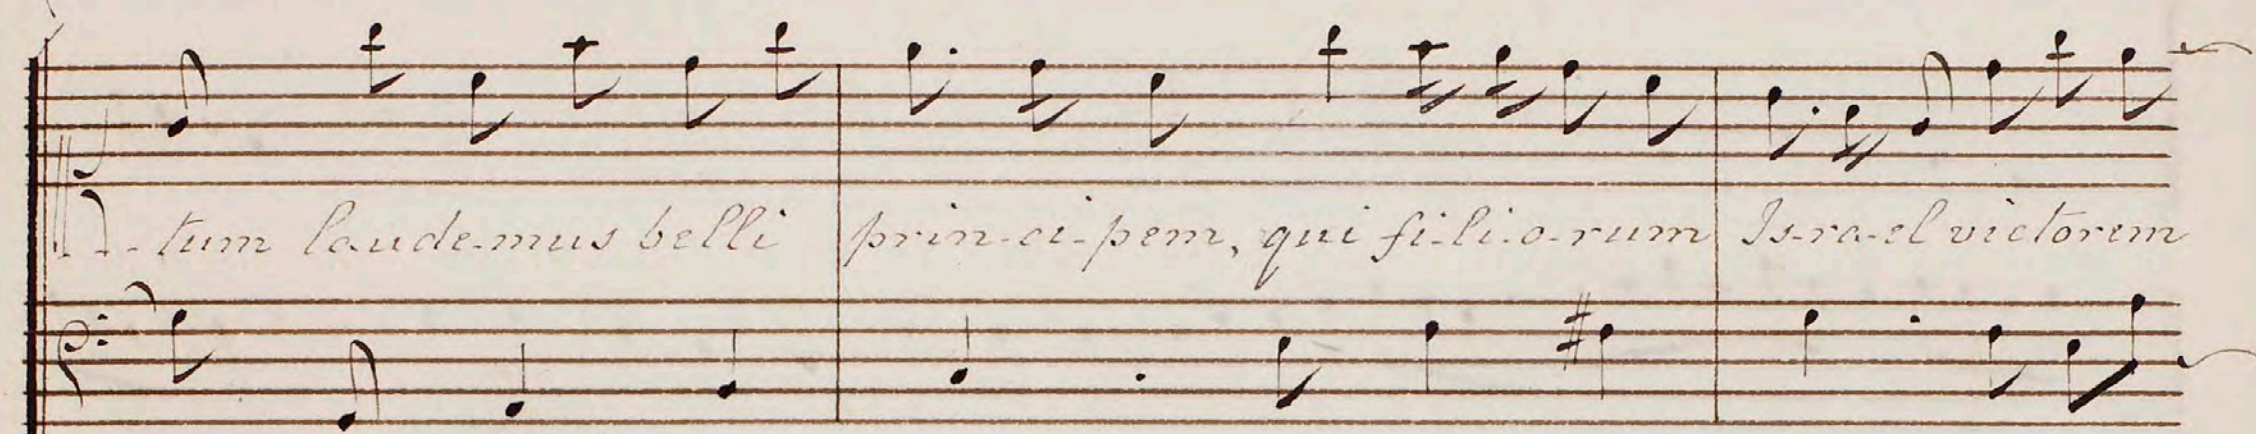 - tum laude-mus belli prin-ci-pem, qui fi-li-o-rum Is-ra-el victorem